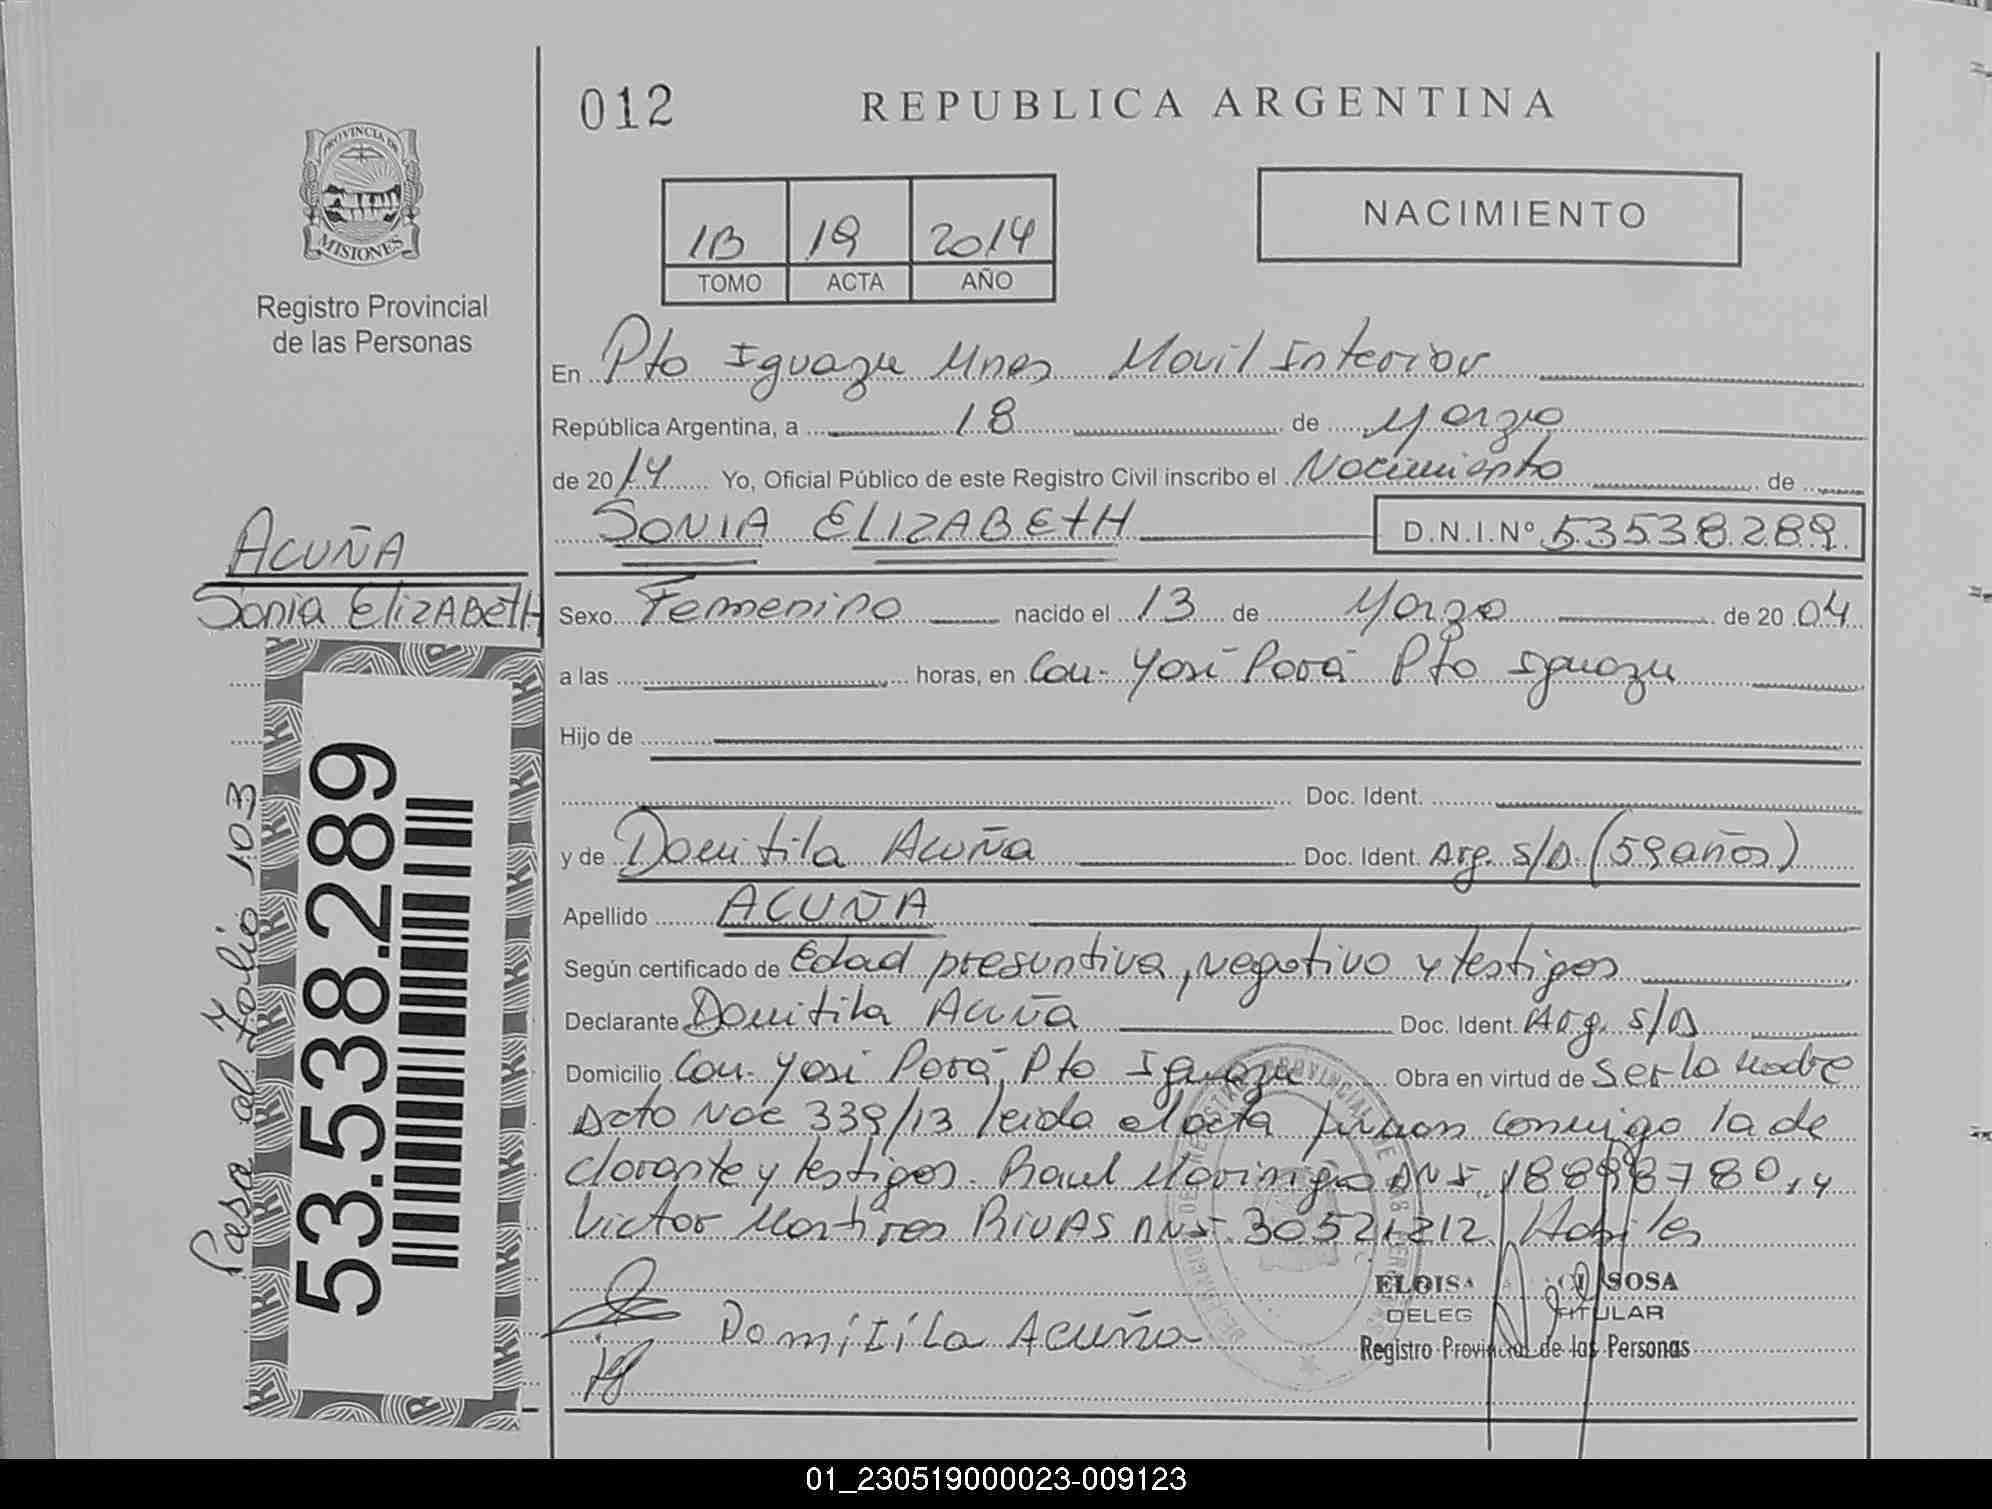 012
REPUBLICA ARGENTINA
PROVINCIA DE
MISIONES
Registro Provincial
de las Personas
NACIMIENTO
1B 19 2014
TOMO ACTA AÑO
En Pto Iguazu Mnes Movil Interior
República Argentina, a 18 de Marzo
de 2014 Yo, Oficial Público de este Registro Civil inscribo el Nacimiento de
SONIA ELIZABEtH D.N.I.Nº 53538289
ACUÑA
Sonia ElizABetH
Sexo Femenino nacido el 13 de Marzo de 2004
a las horas, en Com. Yasi Porá Pto Iguazu
Hijo de
Doc. Ident.
y de Domitila Acuña Doc. Ident. Arg. S/D. (59 años)
Apellido ACUÑA
Según certificado de Edad presuntiva, negativo y testigos
Declarante Domitila Acuña Doc. Ident. Arg. S/D
Domicilio Com. Yasi Porá, Pto Iguazu Obra en virtud de Ser la Madre
Dcto Nac 339/13 leida el acta firman conmigo la de
clarante y testigos. Raul Morinigo DNI 18898780, y
Victor Martires RIVAS DNI 30521212 Habiles
ELOISA SOSA
DELEG TITULAR
Registro Provincial de las Personas
DomiTiLa Acuña
Pasa al Folio 103
53.538.289
01_230519000023-009123